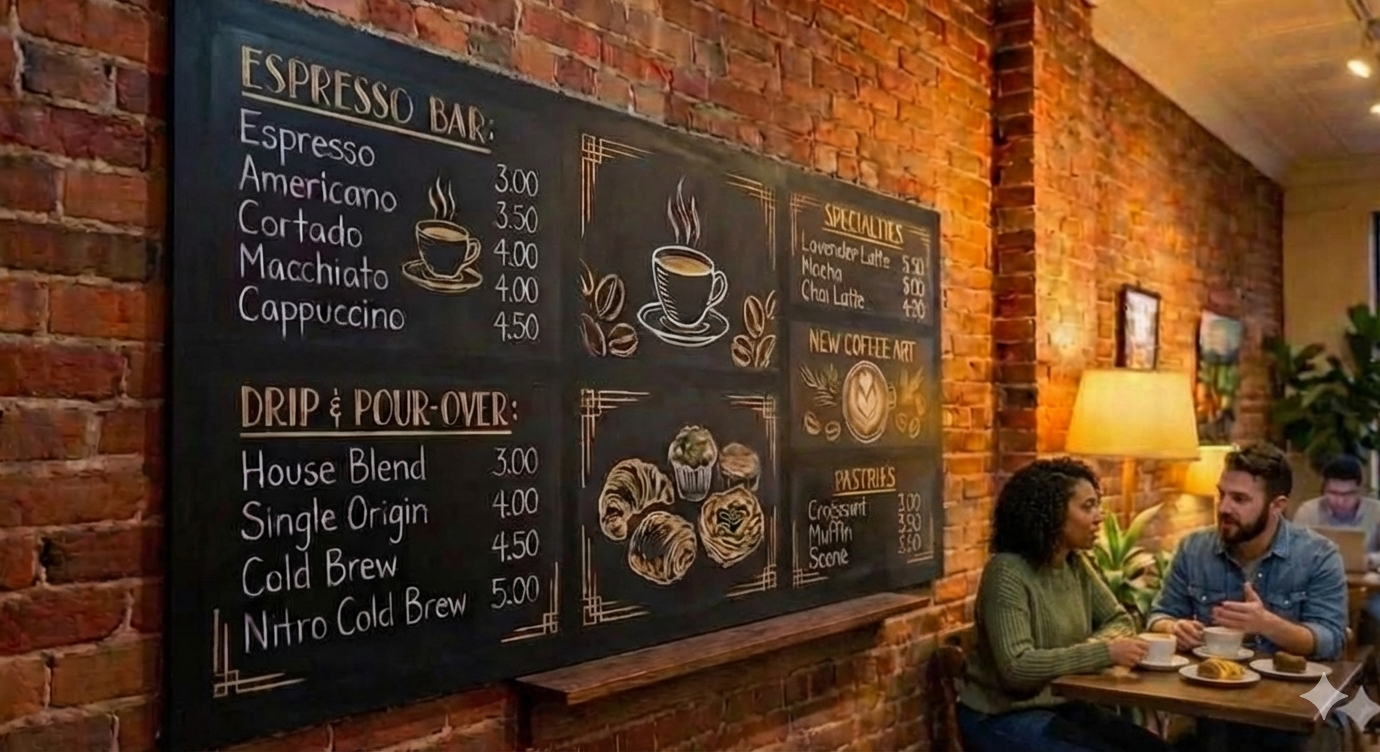 ESPRESSO BAR:
Espresso 3.00
Americano 3.50
Cortado 4.00
Macchiato 4.00
Cappuccino 4.50
DRIP & POUR-OVER:
House Blend 3.00
Single Origin 4.00
Cold Brew 4.50
Nitro Cold Brew 5.00
SPECIALTIES
Lavender Latte 5.50
Mocha
Chai Latte
NEW COFFEE ART
PASTRIES
Muffin
Scone